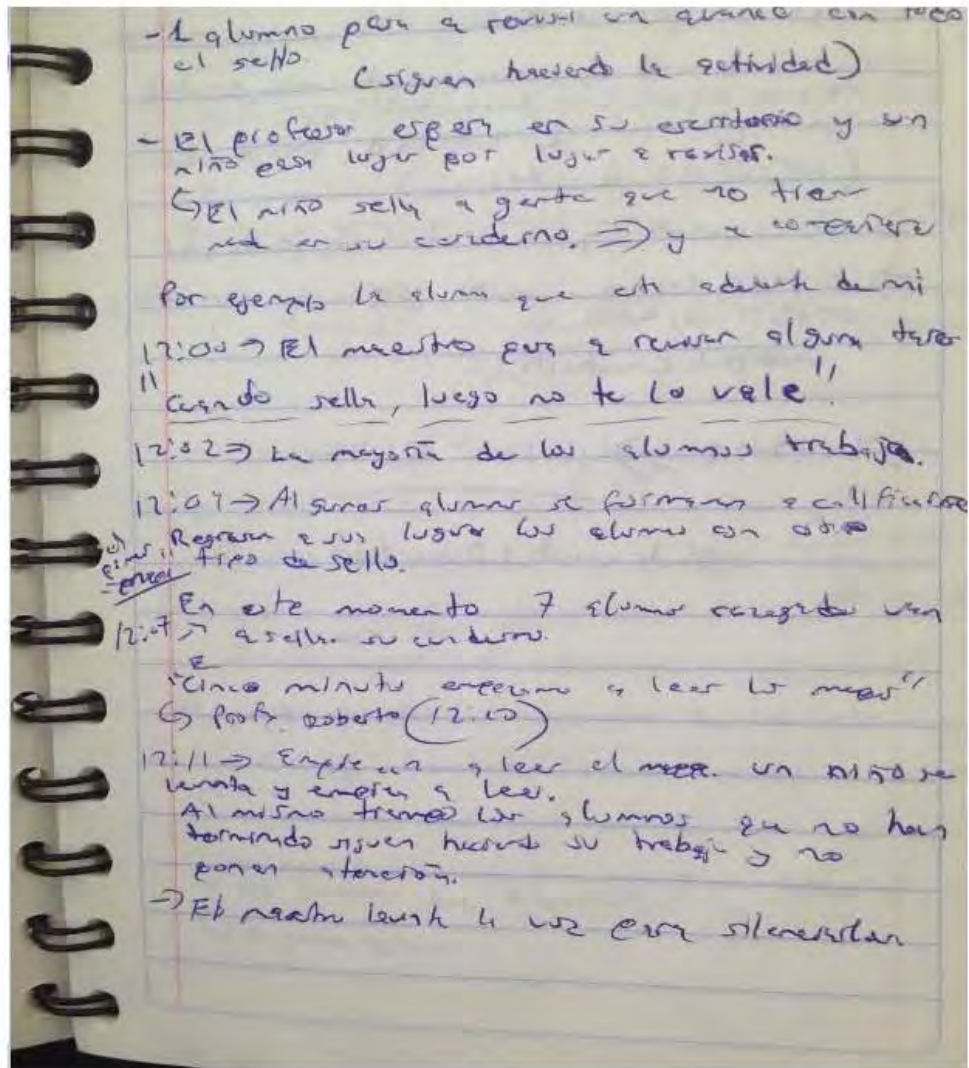 - 1 alumno pasa a revisar un avance con
el sello.
(siguen haciendo la actividad)
- El profesor espera en su escritorio y un
niño pasa lugar por lugar a revisar.
↳ El niño sella a gente que no tiene
nada en su cuaderno. ⇒ y a
Por ejemplo la alumna que está adelante de mi
12:00 → El maestro pasa a revisar alguna tarea
"Cuando sella, luego no te lo vale".
12:02 ⇒ La mayoría de los alumnos trabaja.
→ Algunos alumnos se forman a calificarse
Regresan a sus lugares los alumnos con otro
tipo de sello.
En este momento 7 alumnos van
12:07 → a sellar su cuaderno.
"Cinco minutos empezamos a leer
↳ Profr. Roberto (12:10)
12:11 ⇒ Empiezan a leer el un niño se
levanta y empieza a leer.
Al mismo tiempo los alumnos que no han
terminado siguen haciendo su trabajo y no
ponen atención.
→ El maestro levanta la voz para